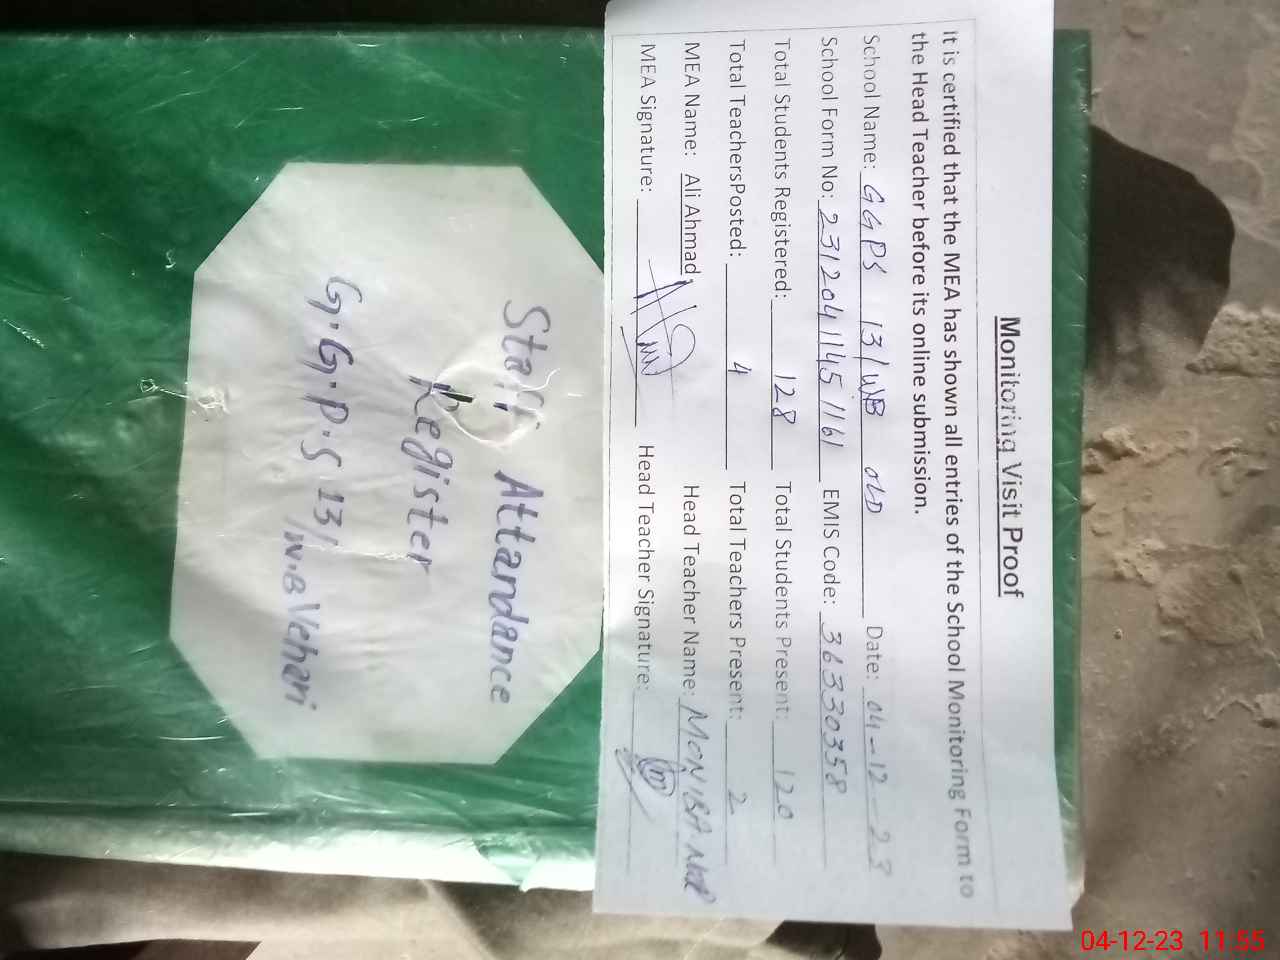 Monitoring Visit Proof
It is certified that the MEA has shown all entries of the School Monitoring Form to
the Head Teacher before its online submission.
School Name: GGPS 13/WB OLD Date: 04-12-23
School Form No: 23120411451161 EMIS Code: 36330358
Total Students Registered: 128 Total Students Present: 120
Total TeachersPosted: 4 Total Teachers Present: 2
MEA Name: Ali Ahmad Head Teacher Name: MONIBA
MEA Signature: Head Teacher Signature:
Staff Attandance
Register
G.G.P.S 13/W.B Vehari
04-12-23 11:55